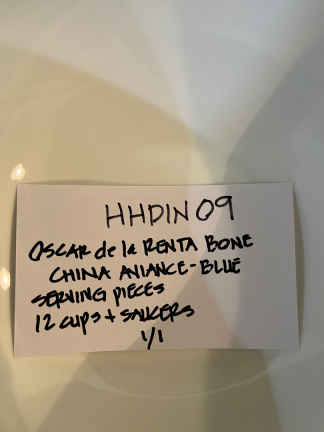 HHDIN09
OSCAR de la RENTA BONE
CHINA AVIANCE-BLUE
SERVING PIECES
12 CUPS + SAUCERS
1/1